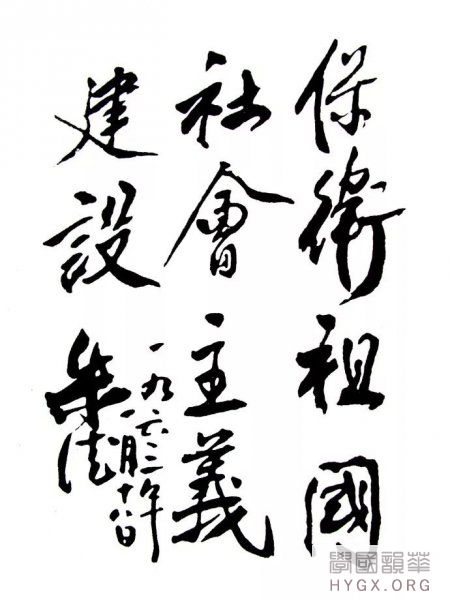 保衛祖國
社會主義
建設
一九六三年
一月十八日
朱德
學國韻華
HYGX.ORG